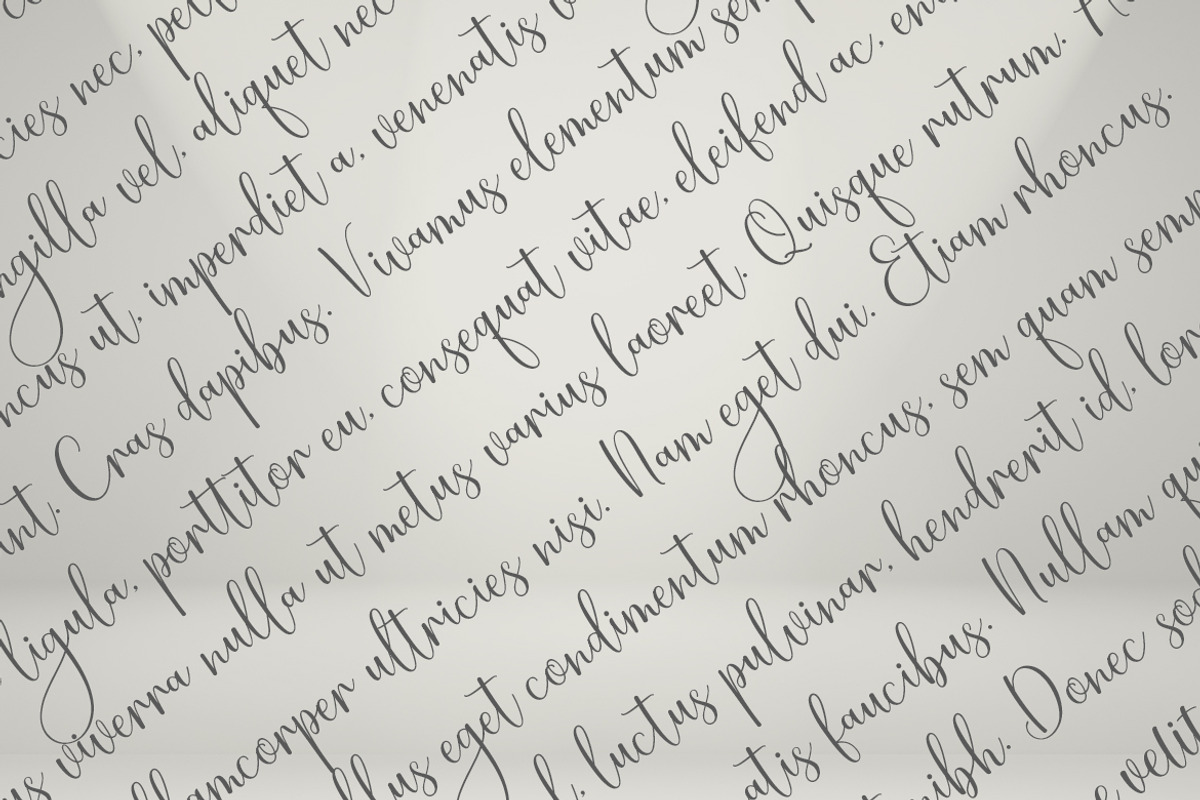 cies nec, pell
ngilla vel, aliquet nec
ncus ut, imperdiet a, venenatis v
int. Cras dapibus. Vivamus elementum sem
ligula, porttitor eu, consequat vitae, eleifend ac, en
us viverra nulla ut metus varius laoreet. Quisque rutrum.
llamcorper ultricies nisi. Nam eget dui. Etiam rhoncus.
llus eget condimentum rhoncus, sem quam semp
l, luctus pulvinar, hendrerit id, lor
atis faucibus. Nullam qu
nibh. Donec sod
e velit